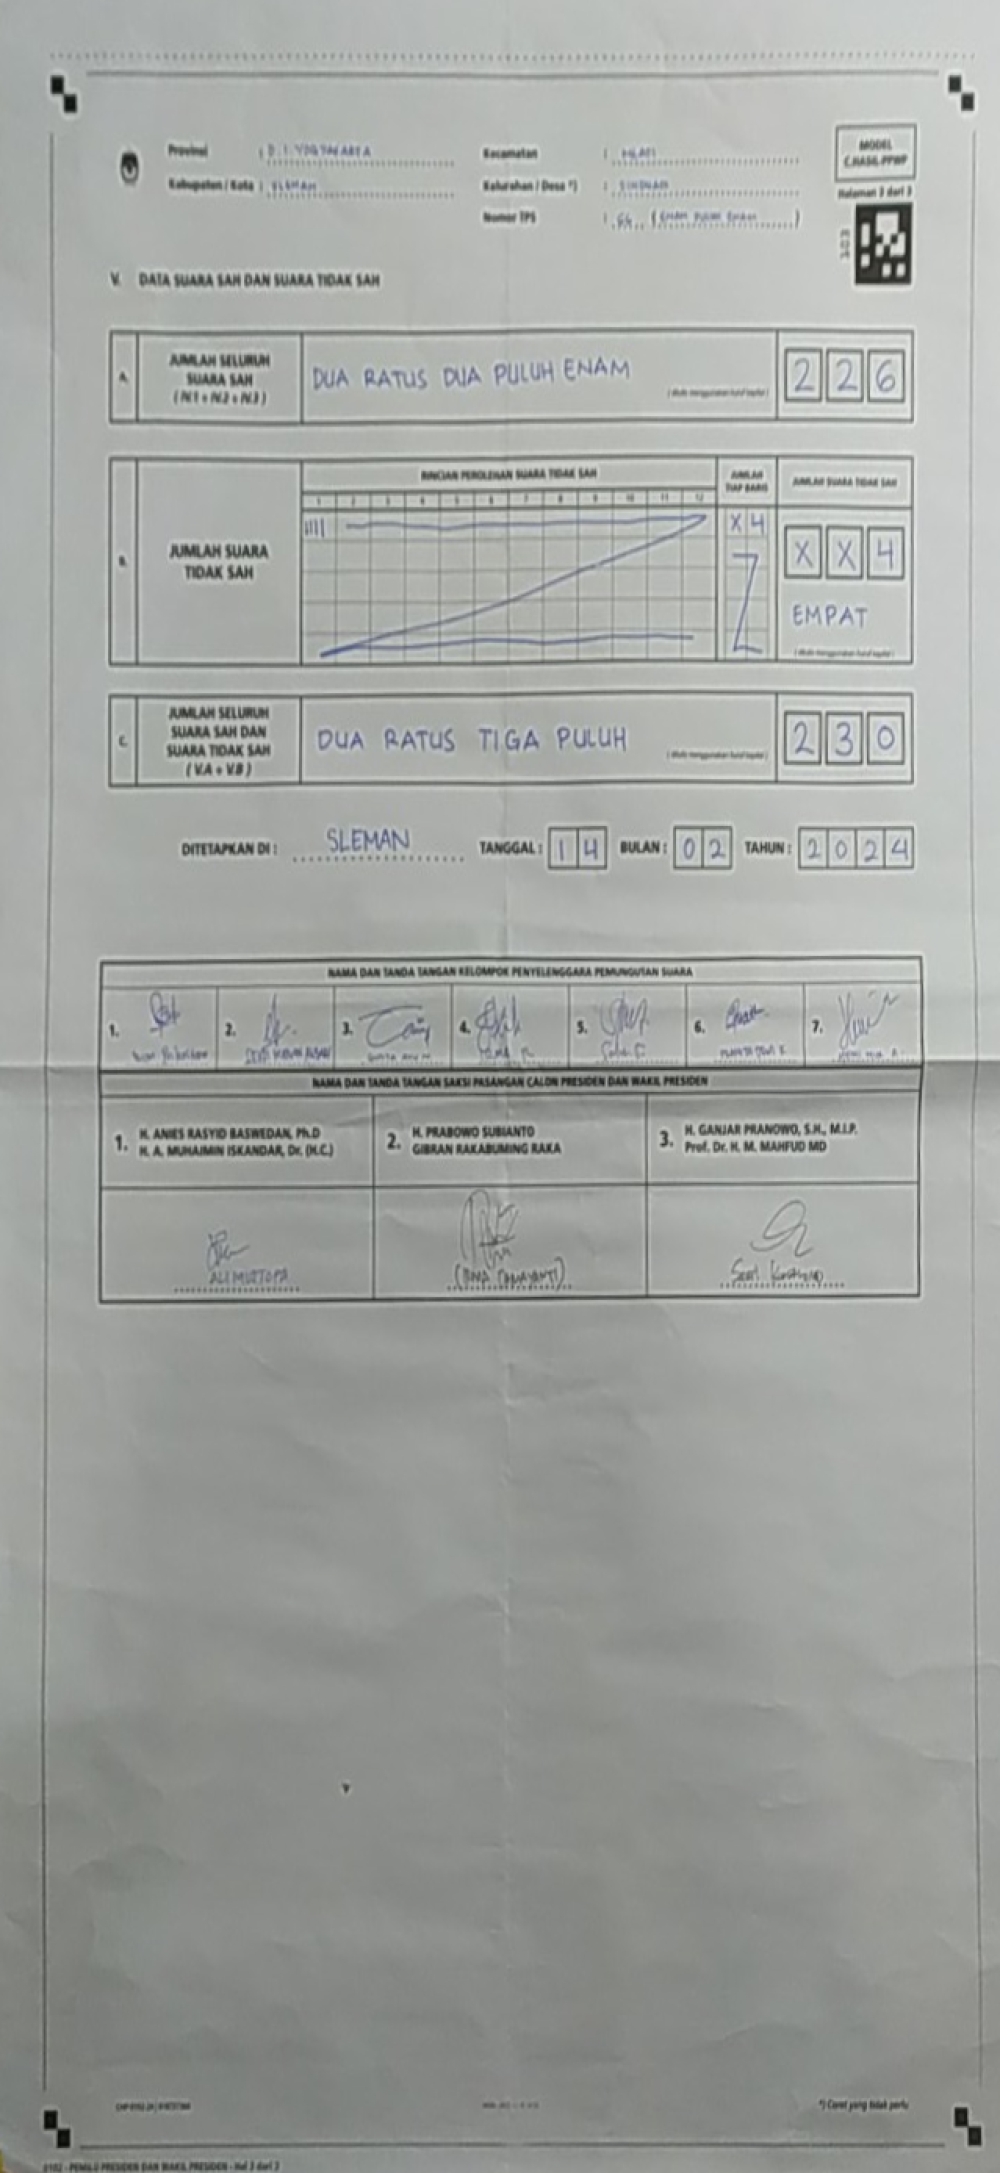 Provinsi : D.I. YOGYAKARTA
Kabupaten / Kota : SLEMAN
Kecamatan : MLATI
Kelurahan / Desa *) : SINDUADI
Nomor TPS : 66 ( ENAM PULUH ENAM )
MODEL
C.HASIL-PPWP
Halaman 3 dari 3
V. DATA SUARA SAH DAN SUARA TIDAK SAH
A. JUMLAH SELURUH
SUARA SAH
( IV.1 + IV.2 + IV.3 )
DUA RATUS DUA PULUH ENAM
( ditulis menggunakan huruf kapital )
2 2 6
B. JUMLAH SUARA
TIDAK SAH
RINCIAN PEROLEHAN SUARA TIDAK SAH
1 2 3 4 5 6 7 8 9 10 11 12
JUMLAH
TIAP BARIS
X 4
JUMLAH SUARA TIDAK SAH
X X 4
EMPAT
( ditulis menggunakan huruf kapital )
C. JUMLAH SELURUH
SUARA SAH DAN
SUARA TIDAK SAH
( V.A + V.B )
DUA RATUS TIGA PULUH
( ditulis menggunakan huruf kapital )
2 3 0
DITETAPKAN DI : SLEMAN TANGGAL : 1 4 BULAN : 0 2 TAHUN : 2 0 2 4
NAMA DAN TANDA TANGAN KELOMPOK PENYELENGGARA PEMUNGUTAN SUARA
1. 2. 3. 4. 5. 6. 7.
NAMA DAN TANDA TANGAN SAKSI PASANGAN CALON PRESIDEN DAN WAKIL PRESIDEN
1. H. ANIES RASYID BASWEDAN, Ph.D
H. A. MUHAIMIN ISKANDAR, Dr. (H.C.)
2. H. PRABOWO SUBIANTO
GIBRAN RAKABUMING RAKA
3. H. GANJAR PRANOWO, S.H., M.I.P.
Prof. Dr. H. M. MAHFUD MD
ALI MUSTOFA
*) Coret yang tidak perlu
0102 - PEMILU PRESIDEN DAN WAKIL PRESIDEN - Hal 3 dari 3